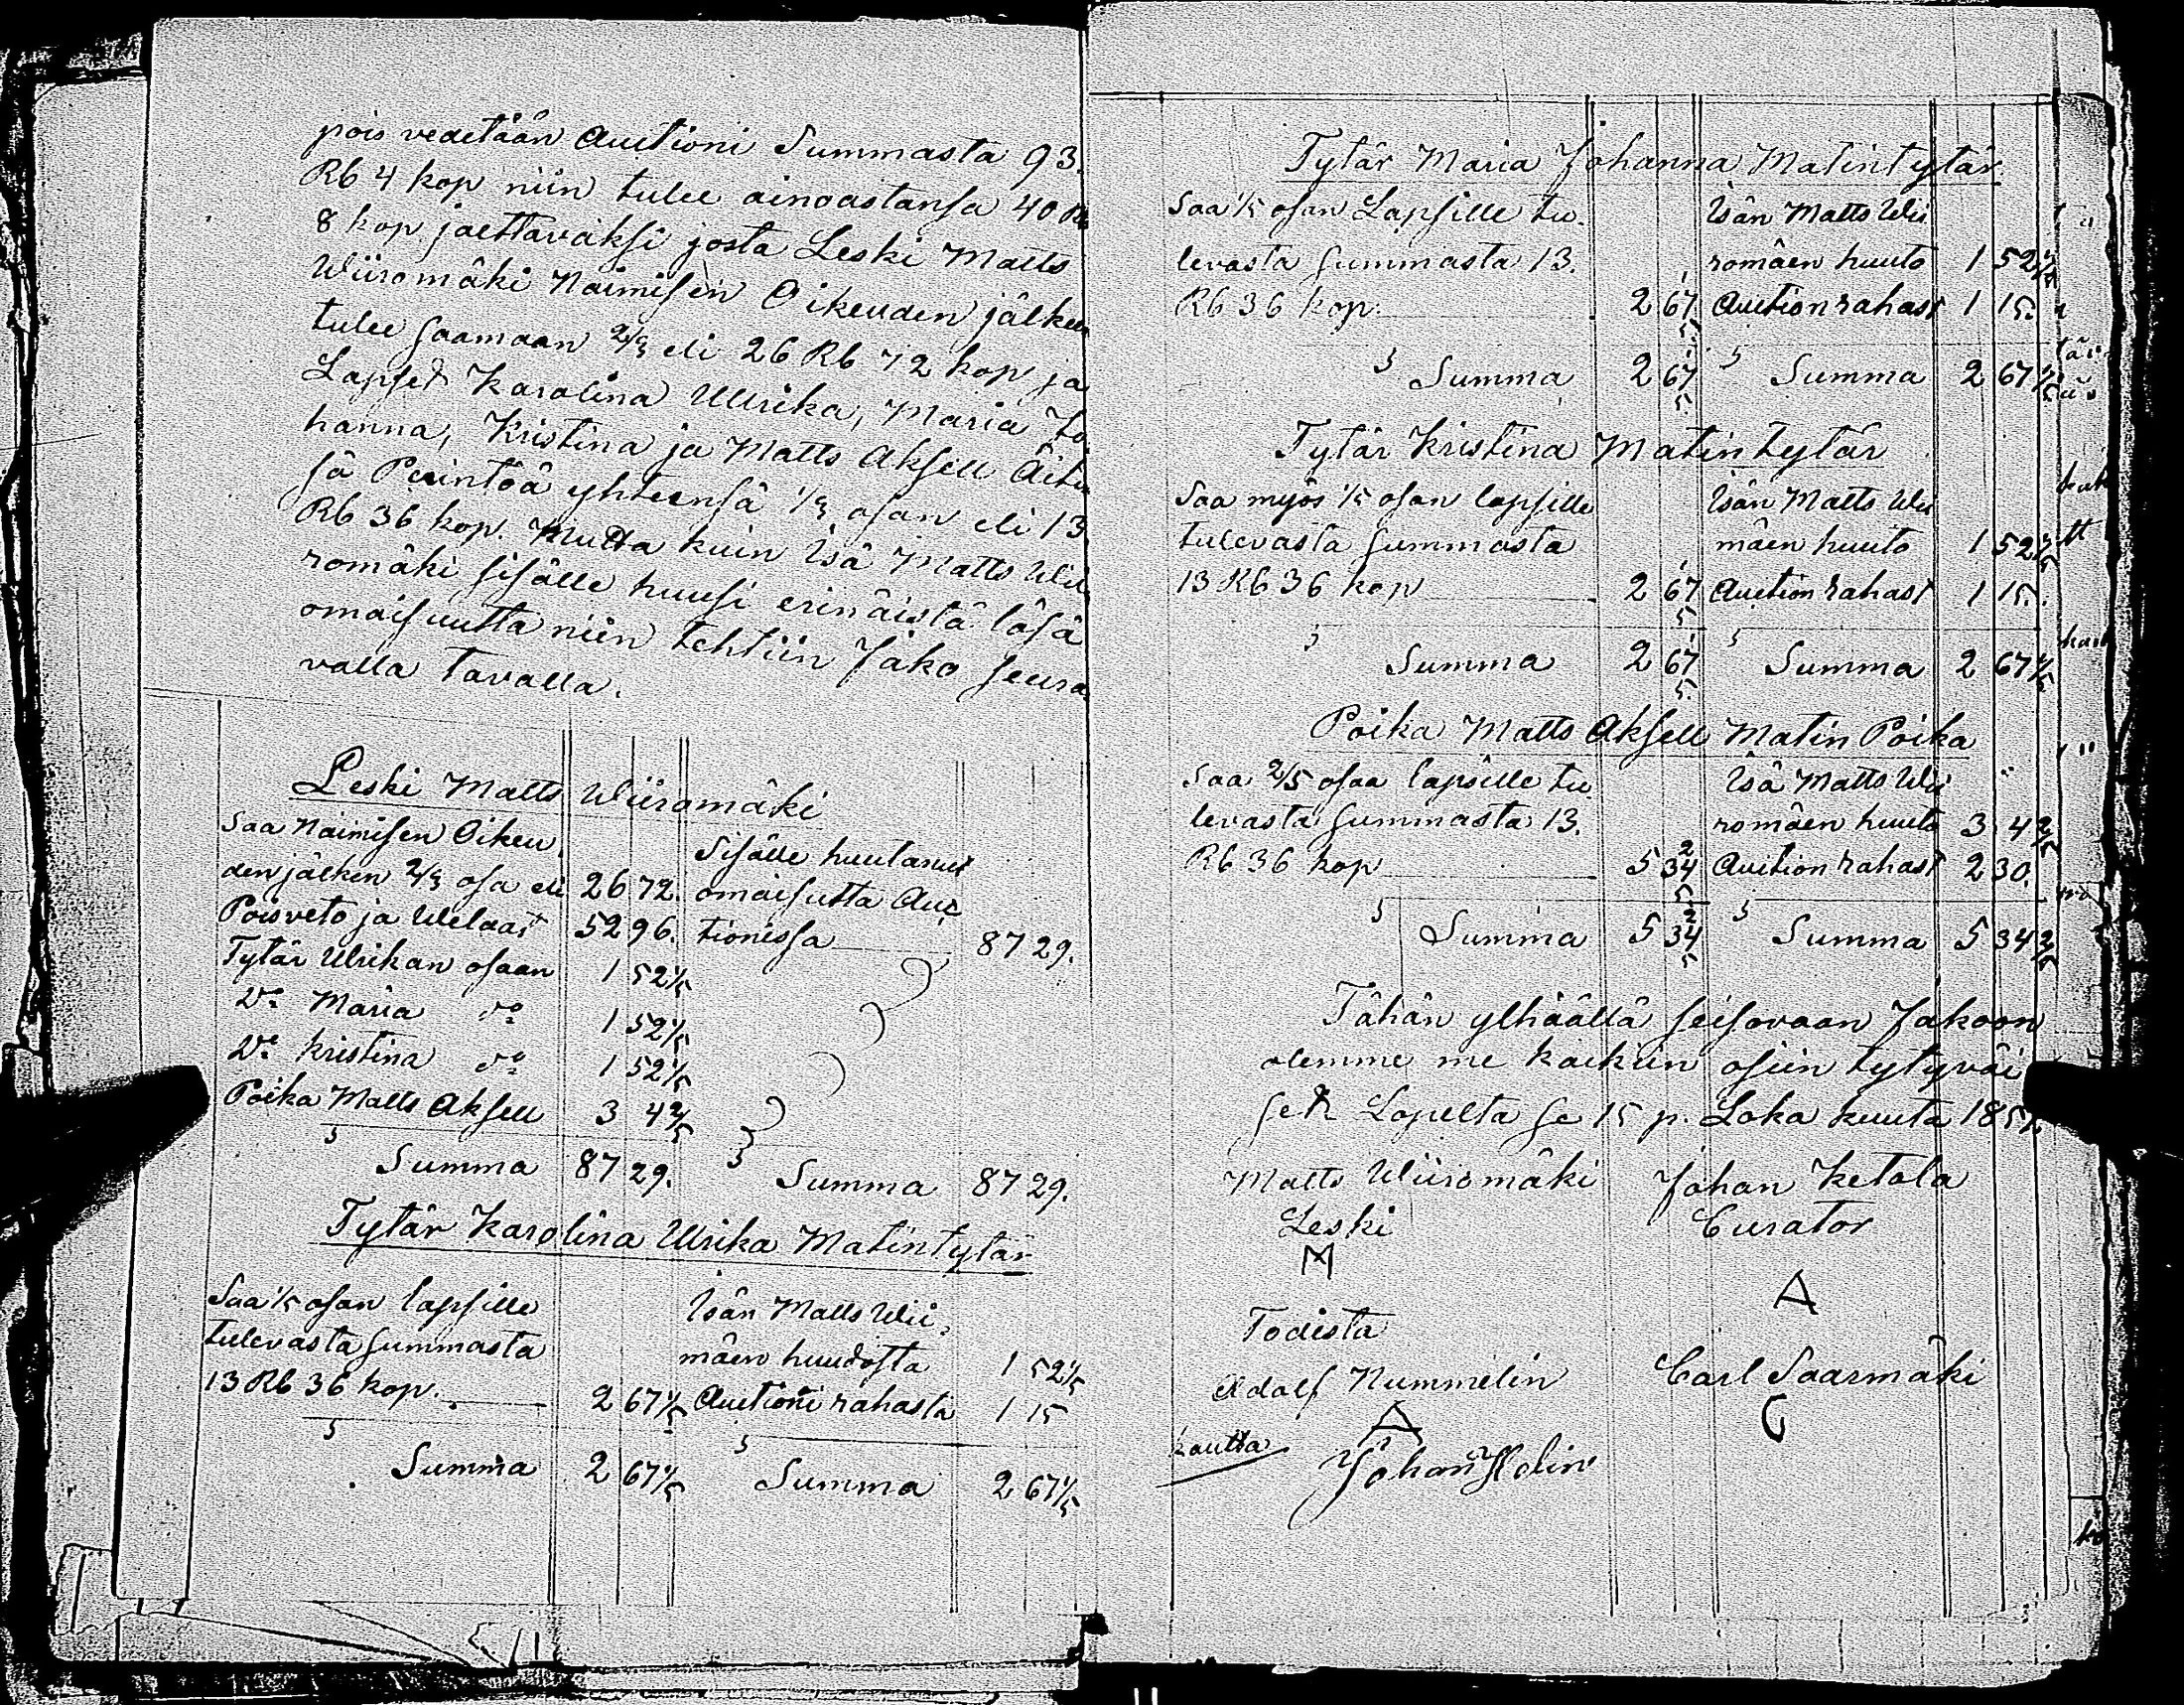 pois vedetään Auctioni Summasta 93.
Rb 4 kop niin tulee ainoastansa 40 Rb
8 kop jaettavaksi josta Leski Matts
Wiiromäki Naimisen Oikeuden jälken
tulee saamaan 2/3 eli 26 Rb 72 kop ja
Lapset Karolina Ulrika, Maria Jo
hanna, Kristina ja Matts Aksell Äitin
sä Perintöä yhteensä 1/3 osan eli 13
Rb 36 kop. Mutta kuin Isä Matts Wii
romäki sisälle huusi erinäistä läsä
omaisuutta niin tehtiin Jako seura
valla tavalla.
Leski Matts Wiiromäki
Saa Naimisen Oikeu
den jälken 2/3 osa eli 26 72.
Poisveto ja Welaat 52 96.
Tytär Ulrikan osaan 1 52 1/5
Do Maria do 1 52 1/5
Do Kristina do 1 52 1/5
Poika Matts Aksell 3 4 2/5
Summa 87 29.
Sisälle huutanut
omaisutta Auc
tionissa 87 29.
Summa 87 29.
Tytär Karolina Ulrika Matintytär
Saa 1/5 osan lapsille
tulevasta summasta
13 Rb 36 kop. 2 67 1/5
Summa 2 67 1/5
Isän Matts Wii
mäen huudosta 1 52 1/5
Auctioni rahasta 1 15
Summa 2 67 1/5
Tytär Maria Johanna Matintytär
Saa 1/5 osan Lapsille tu
levasta summasta 13.
Rb 36 kop. 2 67 1/5
Summa 2 67 1/5
Isän Matts Wii
romäen huuto 1 52 1/5
Auction rahast 1 15.
Summa 2 67 1/5
Tytär Kristina Matintytär
Saa myös 1/5 osan lapsille
tulevasta summasta
13 Rb 36 kop 2 67 1/5
Summa 2 67 1/5
Isän Matts Wii
mäen huuto 1 52 1/5
Auction rahast 1 15.
Summa 2 67 1/5
Poika Matts Aksell Matin Poika
Saa 2/5 osaa lapsille tu
levasta summasta 13.
Rb 36 kop 5 34 2/5
Summa 5 34 2/5
Isä Matts Wii
romäen huuto 3 4 2/5
Auction rahast 2 30.
Summa 5 34 2/5
Tähän ylhäällä seisovaan Jakoon
olemme me kaikiin osiin tytyväi
set Lopelta se 15 p. Loka kuuta
Matts Wiiromäki
Leski
M
Johan Ketola
Curator
A
Todista
Adolf Nummelin
A
Carl Saarmäki
C
kautta
Johan Holin